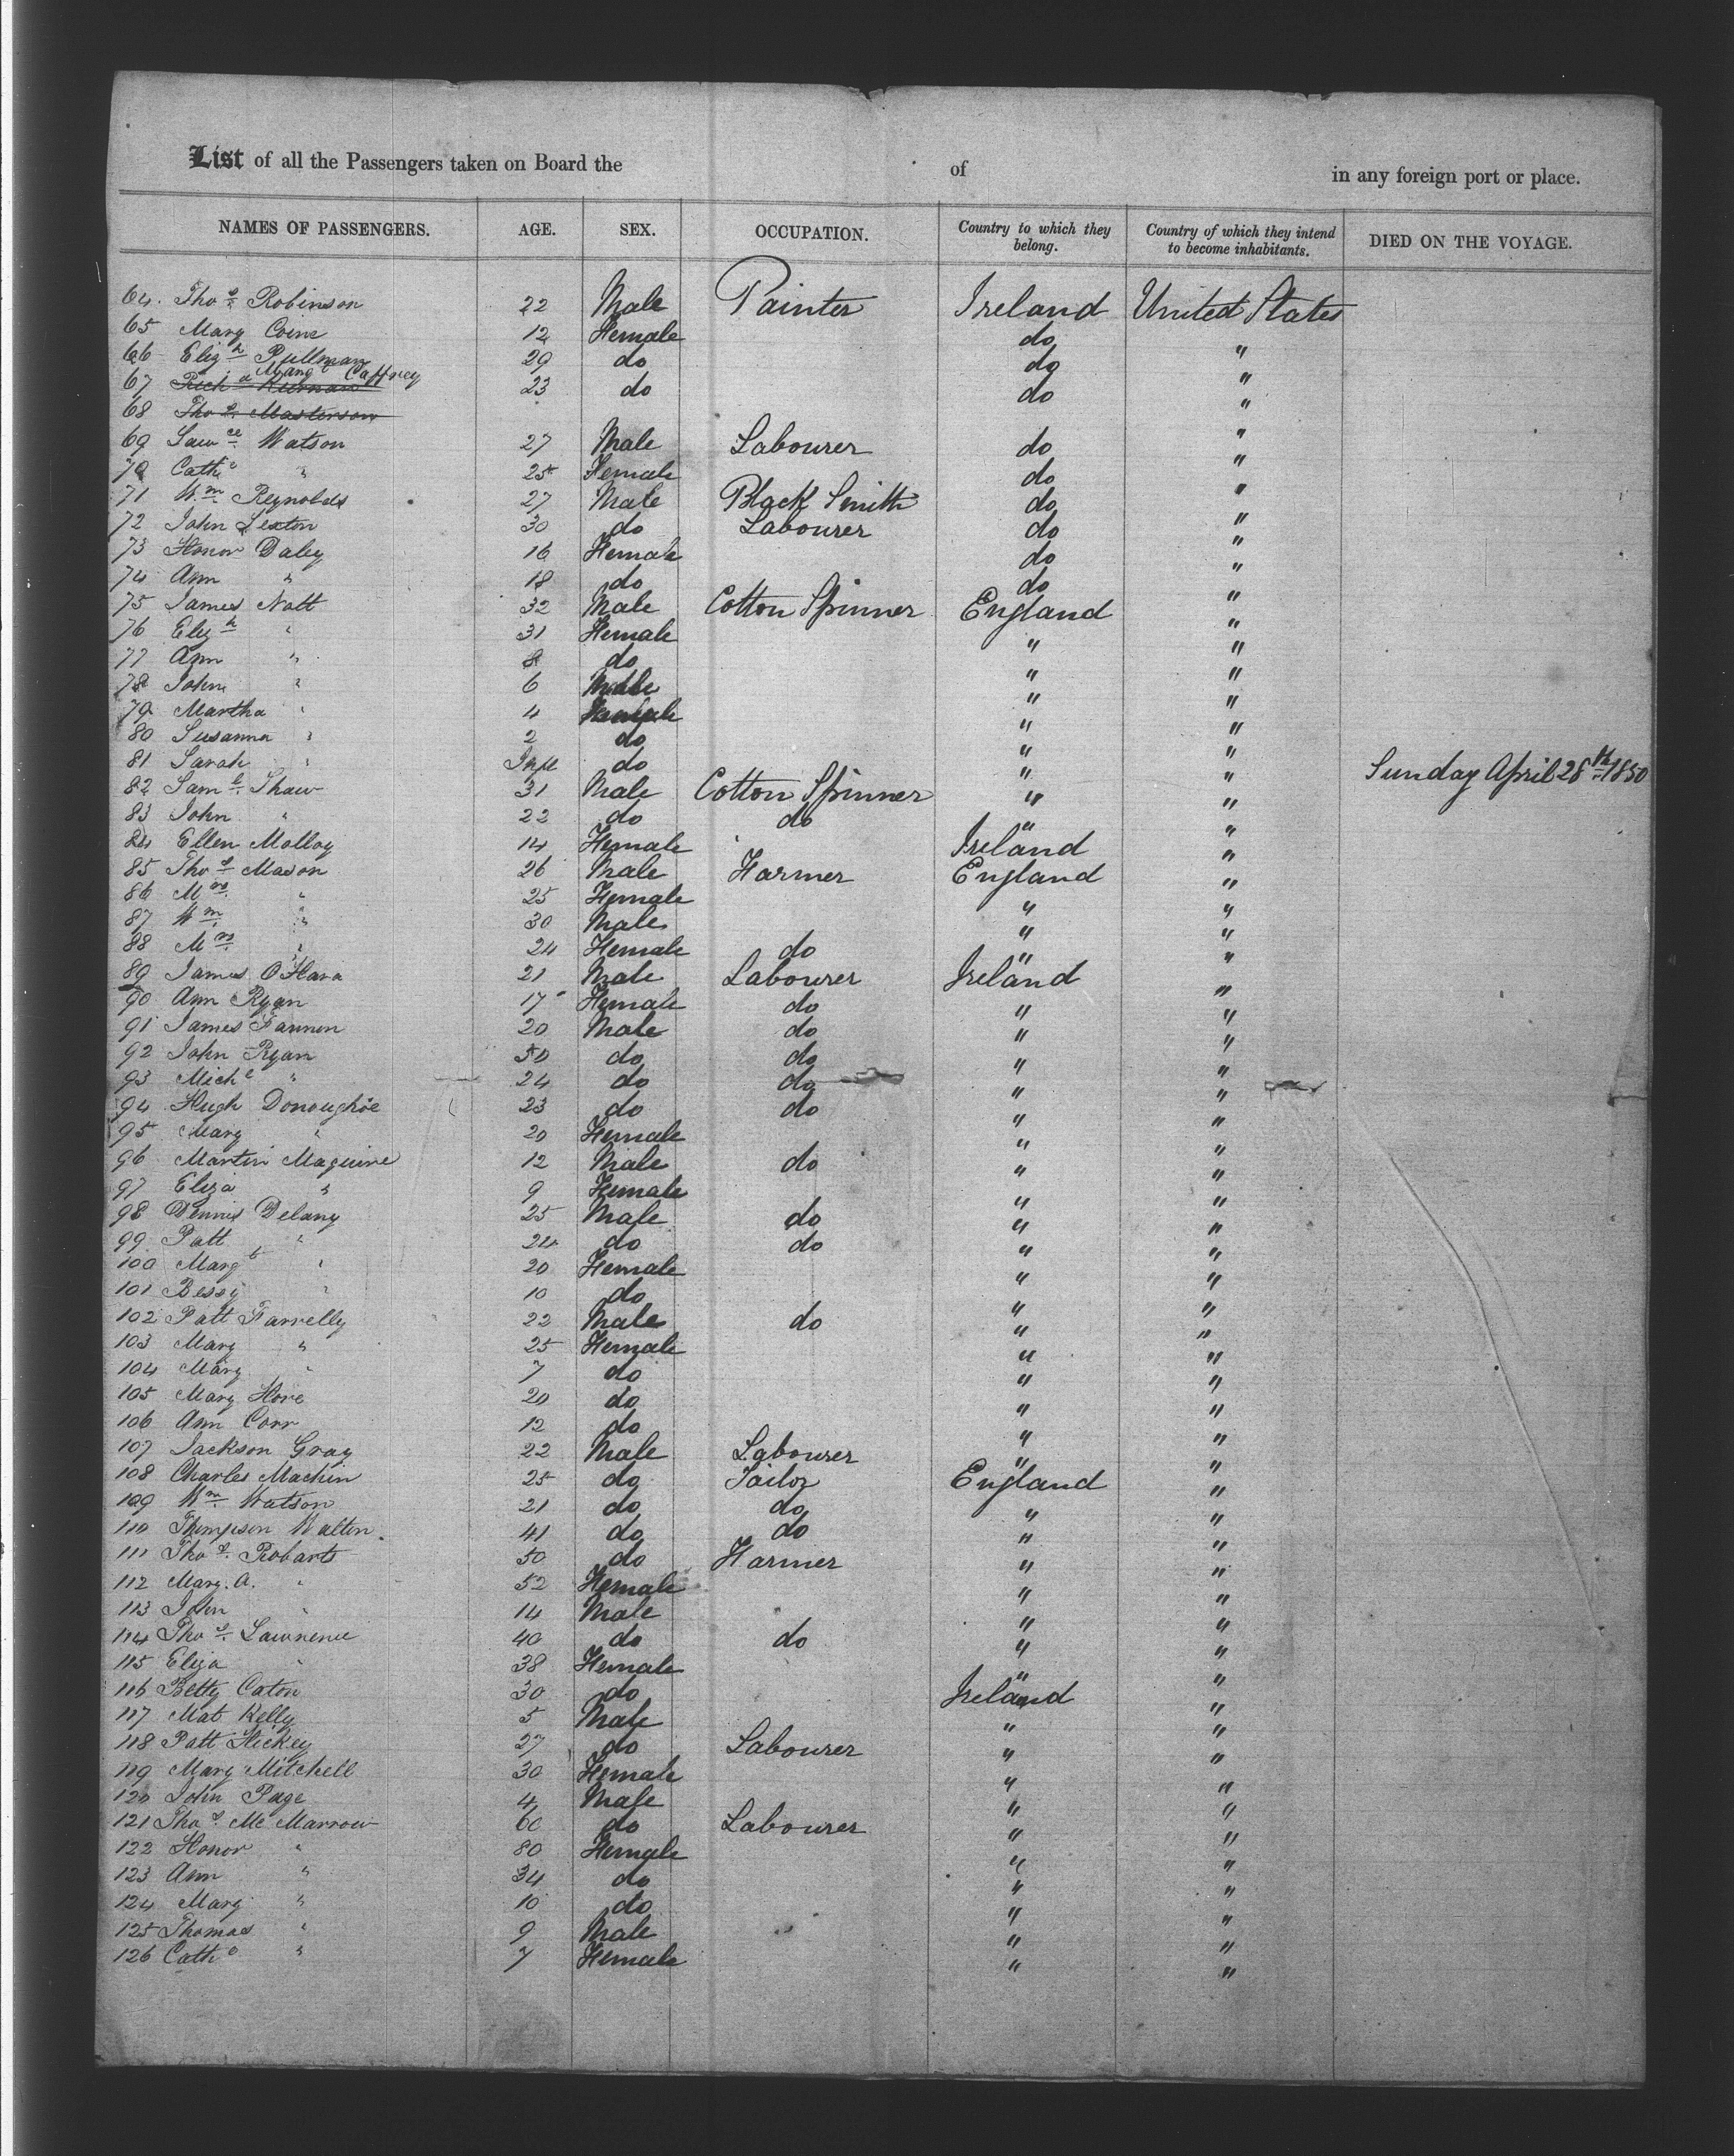 List of all the Passengers taken on Board the of in any foreign port or place.
NAMES OF PASSENGERS. AGE. SEX. OCCUPATION. Country to which they belong. Country of which they intend to become inhabitants. DIED ON THE VOYAGE.
64. Thos. Robinson 22 Male Painter Ireland United States
65 Mary Coine 12 Female do "
66 Elizh Pullman 29 do do "
67 Margt Caffrey 23 do do "
68 Thos. Masterson "
69 Lawce Watson 27 Male Labourer do "
70 Cathe " 25 Female do "
71 Wm. Reynolds 27 Male Black Smith do "
72 John Sexton 30 do Labourer do "
73 Honor Daley 16 Female do "
74 Ann " 18 do do "
75 James Natt 32 Male Cotton Spinner England "
76 Elizh " 31 Female " "
77 Ann " 8 do " "
78 John " 6 Male " "
79 Martha " 4 Female " "
80 Susanna " 2 do " "
81 Sarah " Inft do " " Sunday April 28th 1850
82 Saml. Shaw 31 Male Cotton Spinner " "
83 John " 22 do do " "
84 Ellen Molloy 14 Female Ireland "
85 Thos. Mason 26 Male Farmer England "
86 Mrs. " 25 Female " "
87 Wm. " 30 Male " "
88 Mrs. " 24 Female do " "
89 James O'Hara 21 Male Labourer Ireland "
90 Ann Ryan 17 Female do " "
91 James Fannon 20 Male do " "
92 John Ryan 50 do do " "
93 Michl " 24 do do " "
94 Hugh Donoughoe 23 do do " "
95 Mary " 20 Female " "
96 Martin Maguire 12 Male do " "
97 Eliza " 9 Female " "
98 Dennis Delany 25 Male do " "
99 Patt " 24 do do " "
100 Margt " 20 Female " "
101 Bessy " 10 do " "
102 Patt Farrelly 22 Male do " "
103 Mary " 25 Female " "
104 Mary " 7 do " "
105 Mary Hore 20 do " "
106 Ann Corr 12 do " "
107 Jackson Gray 22 Male Labourer " "
108 Charles Machin 25 do Tailor England "
109 Wm. Watson 21 do do " "
110 Thompson Walton 41 do do " "
111 Thos. Robarts 50 do Farmer " "
112 Mary. A. " 52 Female " "
113 John " 14 Male " "
114 Thos. Lawrence 40 do do " "
115 Eliza " 38 Female " "
116 Betty Caton 30 do Ireland "
117 Mat Kelly 5 Male " "
118 Patt Hickey 27 do Labourer " "
119 Mary Mitchell 30 Female " "
120 John Page 4 Male " "
121 Thos. Mc Marrow 60 do Labourer " "
122 Honor " 80 Female " "
123 Ann " 34 do " "
124 Mary " 10 do " "
125 Thomas " 9 Male " "
126 Cathe " 7 Female " "